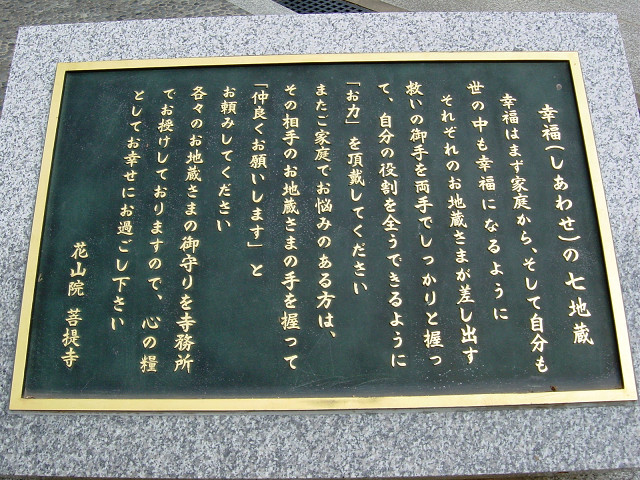 幸福(しあわせ)の七地蔵
幸福はまず家庭から、そして自分も
世の中も幸福になるように
それぞれのお地蔵さまが差し出す
救いの御手を両手でしっかりと握っ
て、自分の役割を全うできるように
「お力」を頂戴してください
またご家庭でお悩みのある方は、
その相手のお地蔵さまの手を握って
「仲良くお願いします」と
お頼みしてください
各々のお地蔵さまの御守りを寺務所
でお授けしておりますので、心の糧
としてお幸せにお過ごし下さい
花山院 菩提寺